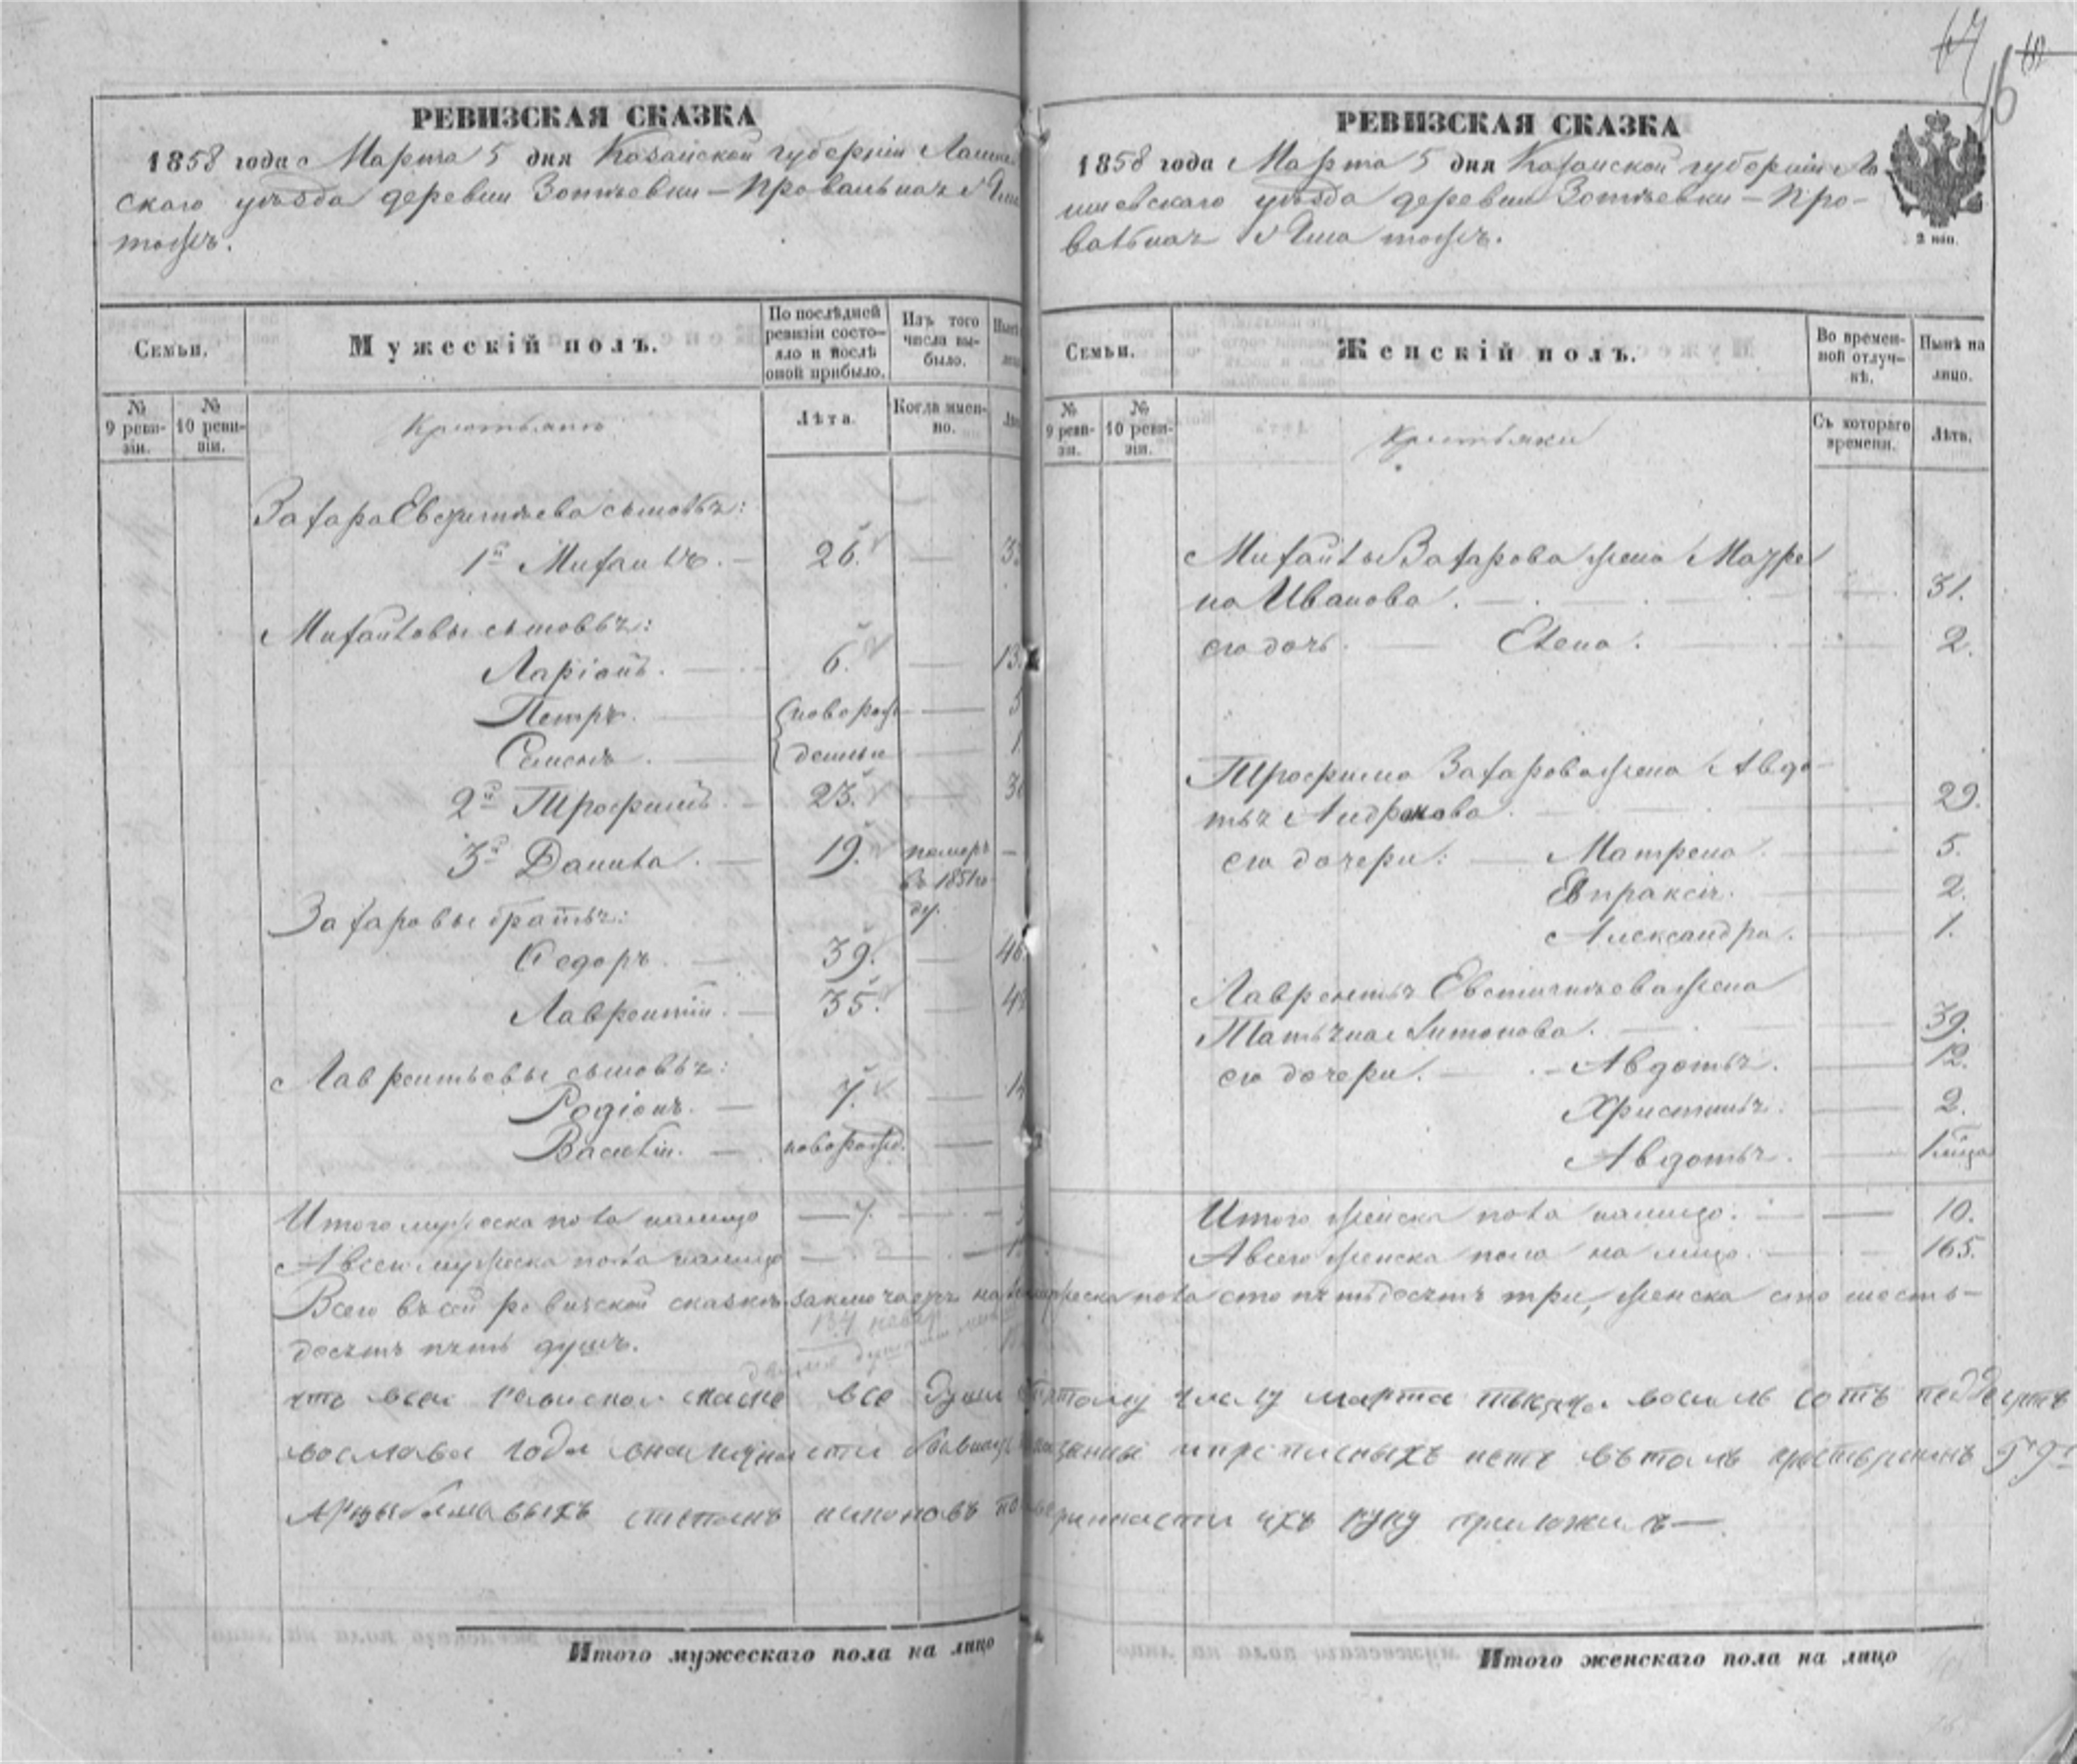 РЕВИЗСКАЯ СКАЗКА
1858 года Марта 5 дня Казанской губернiи Лаише
скаго уѣзда деревни Зотѣевки – Провальная
тожъ.
Семьи.
Мужескiй полъ.
По послѣдней ревизiи состояло и послѣ оной прибыло.
Изъ того числа выбыло.
№ 9 ревизiи.
№ 10 ревизiи.
Крестьяне
Лѣта.
Когда именно.
Захара Евстигнѣева сыновья:
1й Михаилъ. — 26. —
Михайловы сыновья:
Ларiонъ. — 6. — 13.
Петръ. — новорож — 5
Семенъ. — денные — 1
2й Трофимъ. — 23. —
3й Данила. — 19. померъ
въ 1851 го
ду.
Захаровы братья:
Федоръ. — 39. — 46
Лаврентiй. — 35. —
Лаврентьевы сыновья:
Родiонъ. — 7. —
Василiй. — новорожд. —
Итого мужеска пола налицо — 7. —
А всего мужеска пола налицо —
РЕВИЗСКАЯ СКАЗКА
1858 года Марта 5 дня Казанской губернiи Ла
ишевскаго уѣзда деревни Зотѣевки – Про-
вальная тожъ.
2 коп.
Семьи.
Женскiй полъ.
Во временной отлучкѣ.
Нынѣ на лицо.
№ 9 ревизiи.
№ 10 ревизiи.
Крестьянки
Съ котораго времени.
Лѣта.
Михайлы Захарова жена Маvре
на Иванова. — 31.
его дочь. — Елена. — 2.
Трофима Захарова жена Авдо-
тья Андронова. — 29.
его дочери: — Матрена. — 5.
Евпраксiя. — 2.
Александра. — 1.
Лаврентья Евстигнѣева жена
Татьяна Антонова. — 39.
его дочери. — Авдотья. — 12.
Христинья. — 2.
Авдотья. — 1 мѣсяца
Итого женска пола налицо. — 10.
А всего женска пола на лицо. — 165.
Всего въ сей ревизской сказкѣ заключается мужеска пола сто пятьдесятъ три, женска сто шесть-
десятъ пять душъ.
что всей ревиской скаске все души марта тысяча восемь сотъ
года въ томъ
степанъ руку приложилъ —
Итого мужескаго пола на лицо
Итого женскаго пола на лицо